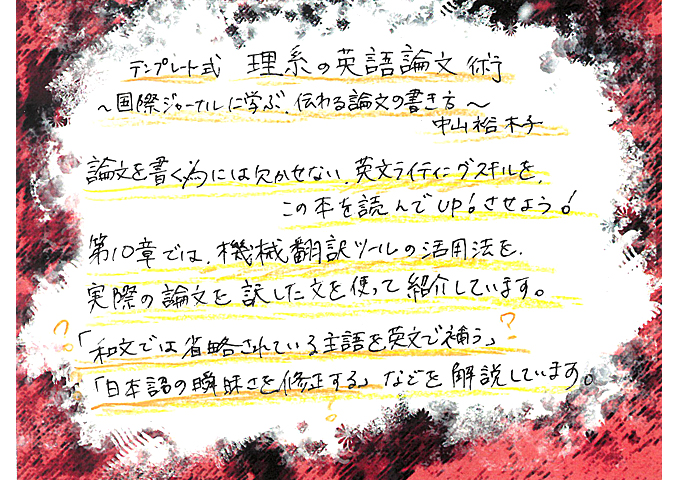 テンプレート式 理系の英語論文術
～国際ジャーナルに学ぶ、伝わる論文の書き方～
中山裕木子
論文を書く為には欠かせない、英文ライティングスキルを、
この本を読んでUP！させよう！
第10章では、機械翻訳ツールの活用法を、
実際の論文を訳した文を使って紹介しています。
？「和文では省略されている主語を英文で補う」？
「日本語の曖昧さを修正する」などを解説しています。
？